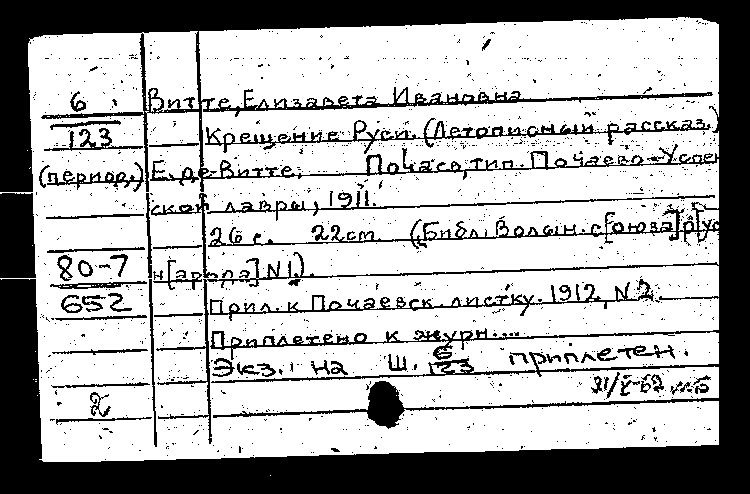 6 Витте, Елизавета Ивановна
123 Крещение Руси. (Летописный рассказ.)
(период.) Е. де-Витте. Почаев, тип. Почаево-Успен
ской лавры, 1911.
26 с. 22 см. (Библ. Волын. с[оюза] р[ус
80-7 н[арода] N1).
652 Прил. к Почаевск. листку. 1912, N 2.
Приплетено к журн....
Экз. на Ш. 6/123 приплетен.
2